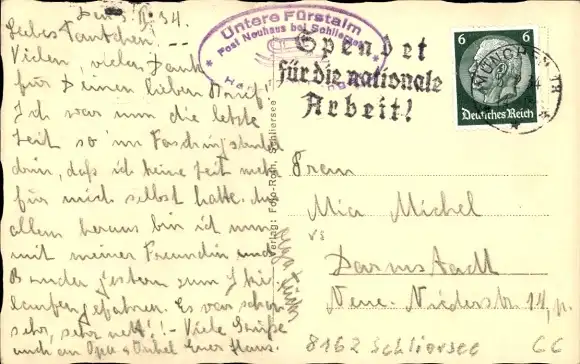 II. 34.
Liebes Tantchen!
Vielen, vielen Dank
für Deinen lieben Brief!
Ich war nun die letzte
Zeit so im
drin, daß ich keine Zeit mehr
für mich selbst hatte. Aus
allem heraus bin ich nun
mit meiner Freundin und
Bruder gestern zum Ski-
laufen gefahren. Es war schon
sehr, sehr nett! - Viele Grüße
auch an Opa + Onkel Euer Hans.
Untere Fürstalm
* Post Neuhaus bei Schliersee *
Spendet
für die nationale
Arbeit!
MÜNCHEN
6 6
Deutsches Reich
Verlag: Foto-Roth, Schliersee
Frau
Mia Michel
Darmstadt
Neue Niederstr 14, p.
8162 Schliersee
GG